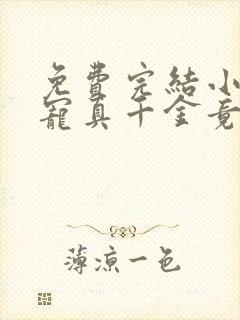 免費完結小
寵真千金竟
薄涼一色